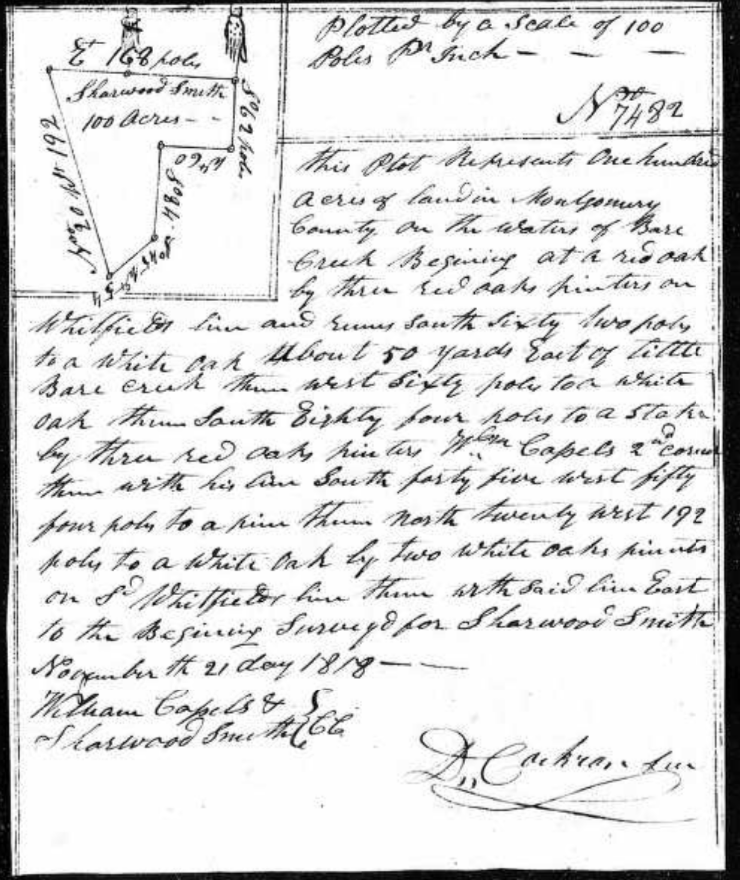 E 168 poles
Sharwood Smith
100 Acres - -
So 62 pole
W 60
So 84
So 45 W 54
No 20 W 192
Plotted by a Scale of 100
Poles Pr Inch - - -
No 7482
this Plot Represents One hundred
Acres of land in Montgomery
County on the waters of Bare
Creek Begining at a red oak
by three red oaks pinters on
Whitfields line and runs South Sixty two poles
to a White oak About 50 yards East of Little
Bare creek then west Sixty poles to a white
oak then South Eighty four poles to a Stake
by three red oaks pinters Wm Capels 2nd corner
then with his line South forty five west fifty
four poles to a pine then North twenty west 192
poles to a White Oak by two white oaks pinters
on Sd Whitfields line then with Said line East
to the Begining Surveyd for Sharwood Smith
November th 21 day 1818 - -
William Capels &
Sharwood Smith } CC
D,, Cochran Sur